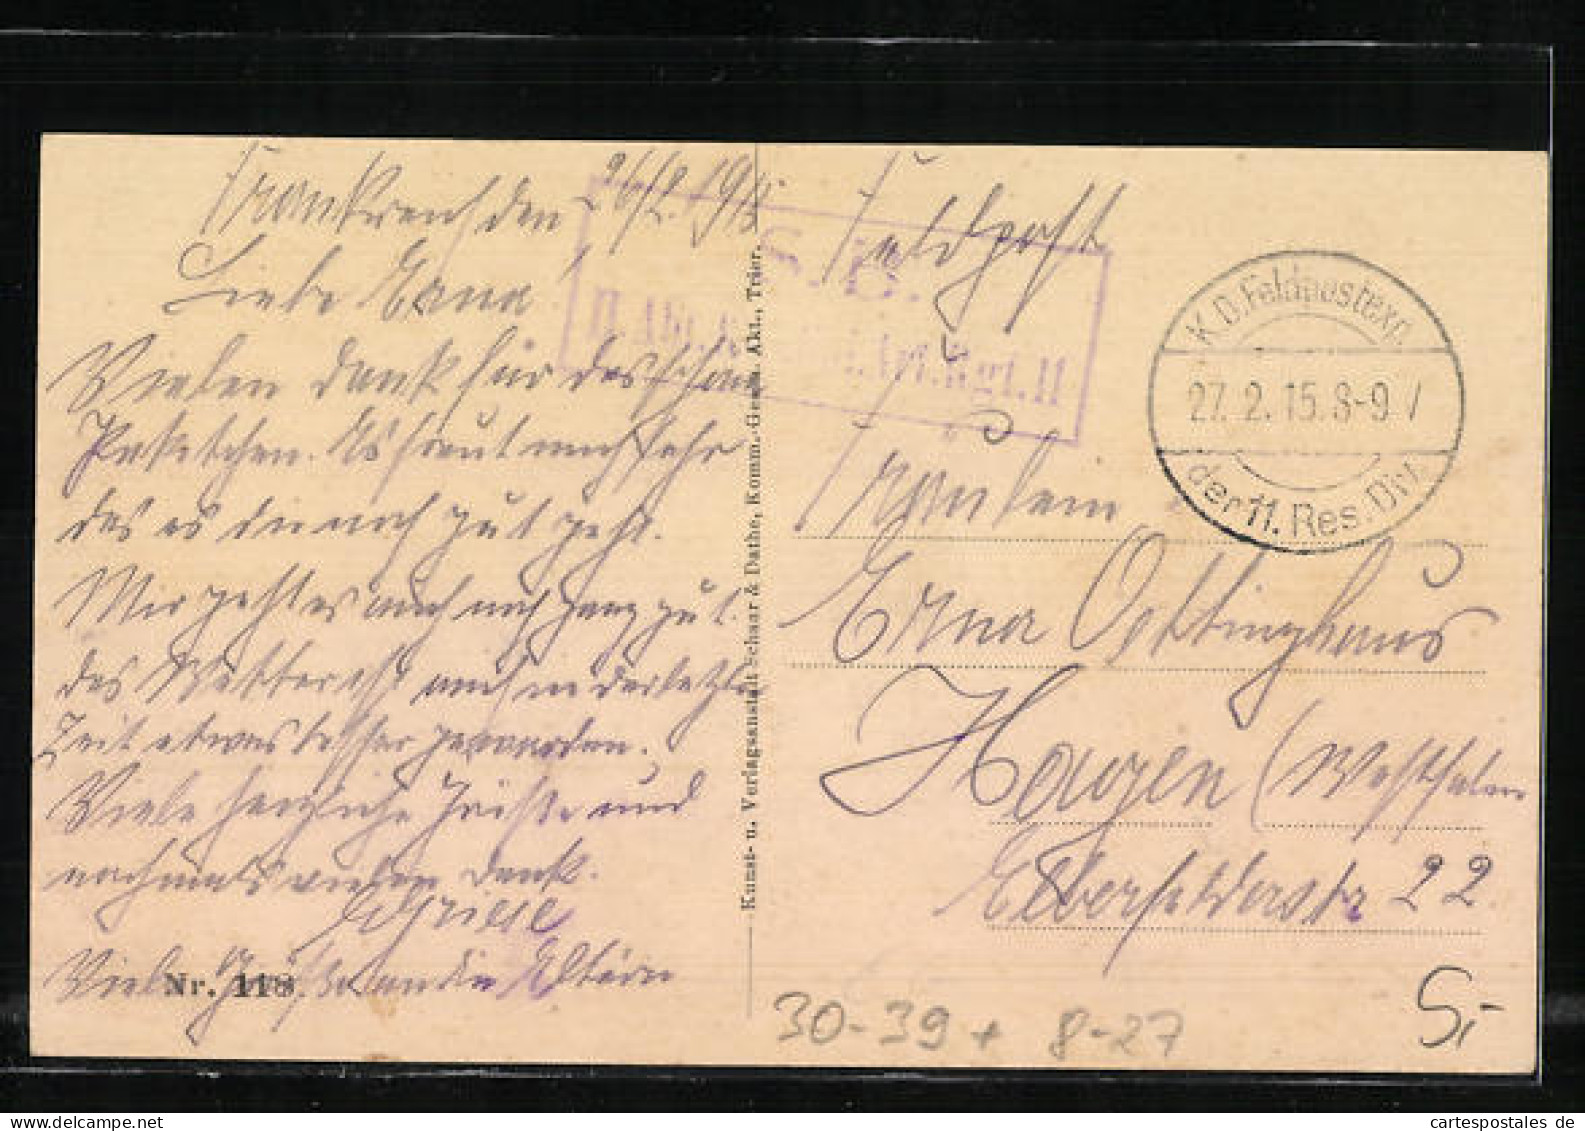 Frankreich den 26/2. 1915
Liebe Erna!
Vielen Dank für das schöne
Paketchen. Es freut mich sehr
das es dir noch gut geht.
Mir geht es auch noch ganz gut.
das Wetter ist auch in der letzten
Zeit etwas besser geworden.
Viele herzliche Grüße und
nochmals vielen Dank.
Viele Grüße an die Eltern
Nr. 118
Kunst- u. Verlagsanstalt Schaar & Dathe, Komm.-Ges. a. Akt., Trier.
Feldpost
S. B.
II Abt. Res. Art. Rgt. 11
K. D. Feldpostexp.
27. 2. 15. 8-9 V
der 11. Res. Div.
Fräulein
Erna Oettinghaus
Hagen (Westfalen
Elberfelderstr 22
30-39 + 8-27
5,-
cartespostales de